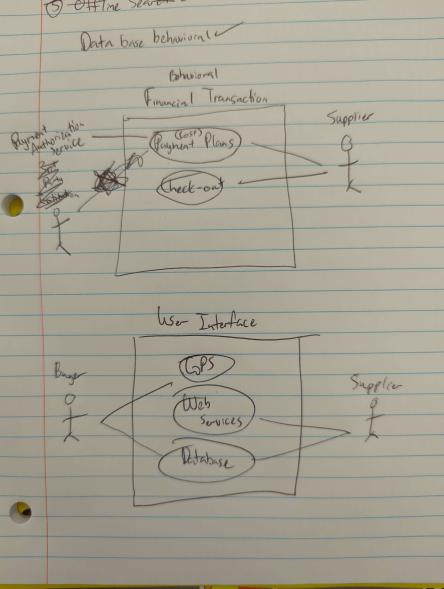 ⑤ Offline Search
Data base behavioral ✓
Behavioral
Financial Transaction
Payment
Authorization
Service
(Cost)
Payment Plans
Supplier
Check-out
User Interface
Buyer
GPS
Web
Services
Supplier
Database